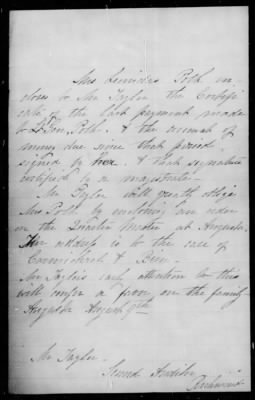 Mrs Leonidas Polk in
closes to Mr Taylor the Certifi
cate of the last payment made
to Lt Gen. Polk. & the account of
money due since that period
signed by her. & that signature
certified to a magistrate.
Mr Taylor will greatly oblige
Mrs Polk by enclosing an order
on the Quarter Master at Augusta.
Her address is to the care of
Carmichael & Bein.
Mr Taylor's early attention to this
will confer a favor on the family
Augusta August 9th
Mr Taylor
Second Auditor
Richmond